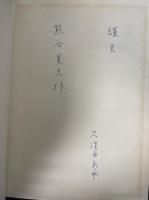 謹呈
熊谷寛夫様
久保田あや